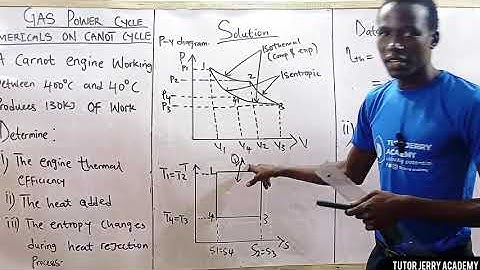 GAS POWER CYCLE
NUMERICALS ON CANOT CYCLE
A Carnot engine Working
between 400°c and 40°C
Produces 130KJ OF Work
Determine:
i) The engine thermal
efficiency
ii) The heat added
iii) The entropy changes
during heat rejection
Process
Solution
P-v diagram
P
P1
P2
P4
P3
1
2
4
3
Isothermal
(comp & exp)
Isentropic
V1 V4 V2 V3
V
T
T1=T2
T4=T3
1
4
3
S1=S4
S2=S3
S
Data
ηth =
=
ii)
TUTOR JERRY
ACADEMY
TUTOR JERRY ACADEMY